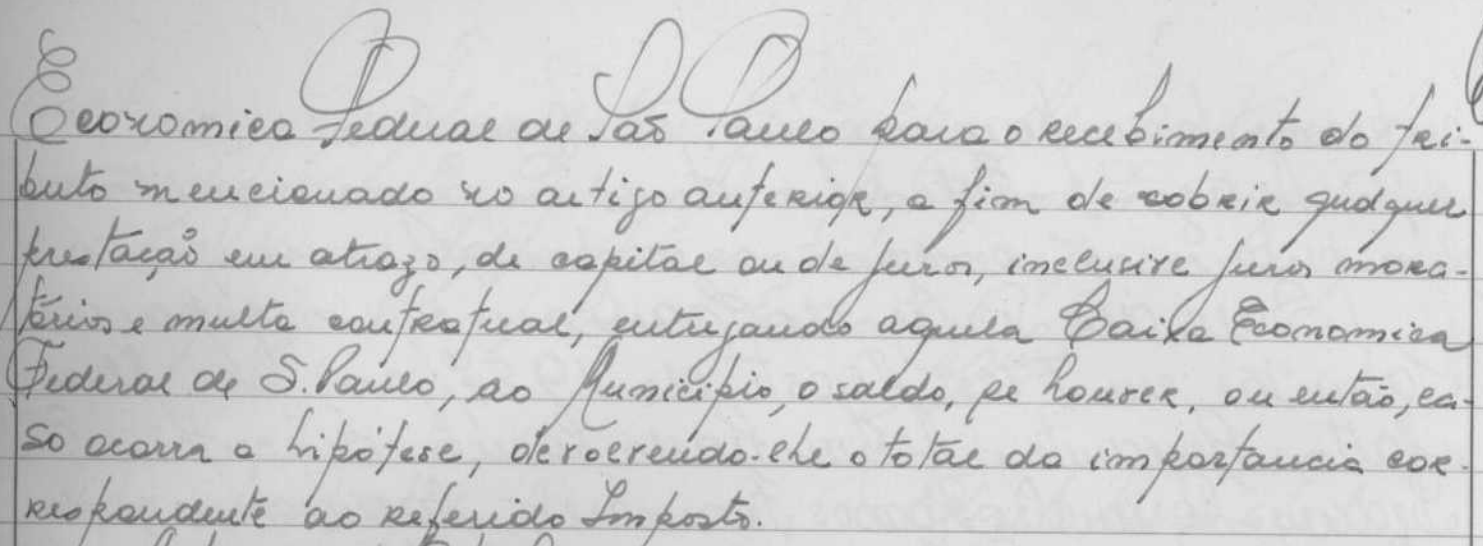 Economica Federal de São Paulo para o recebimento do tri-
buto mencionado no artigo anterior, a fim de cobrir qualquer
prestação em atrazo, de capital ou de juros, inclusive juros mora-
tórios e multa contratual, entregando aquela Caixa Economica
Federal de S. Paulo, ao Municipio, o saldo, se houver, ou então, ca-
so ocorra a hipótese, devolvendo-lhe o total da importancia cor-
respondente ao referido Imposto.